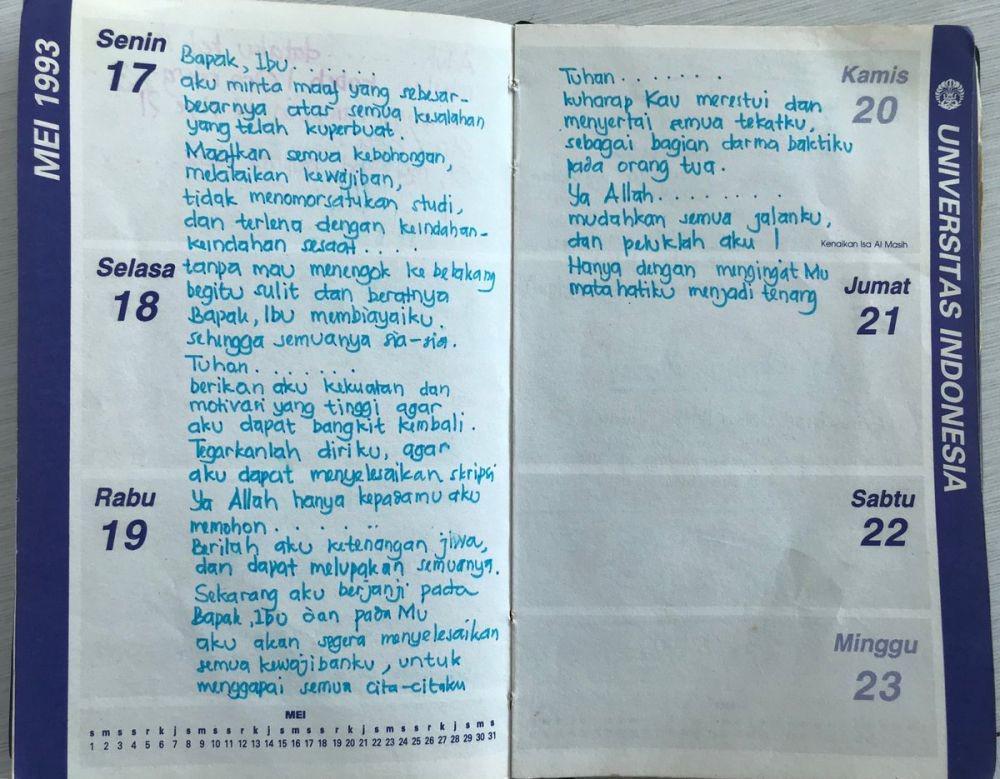 MEI 1993
Senin
17
Bapak, Ibu.
aku minta maaf yang sebesar-
besarnya atas semua kesalahan
yang telah kuperbuat.
Maafkan semua kebohongan,
melalaikan kewajiban,
tidak menomorsatukan studi,
dan terlena dengan keindahan-
keindahan sesaat . . . .
Selasa
18
tanpa mau menengok ke belakang
begitu sulit dan beratnya
Bapak, Ibu membiayaiku.
sehingga semuanya sia-sia.
Tuhan . . . . . . .
berikan aku kekuatan dan
motivasi yang tinggi agar
aku dapat bangkit kembali.
Tegarkanlah diriku, agar
aku dapat menyelesaikan skripsi
Rabu
19
Ya Allah hanya kepadamu aku
memohon . . . . . . .
Berilah aku ketenangan jiwa,
dan dapat melupakan semuanya.
Sekarang aku berjanji pada
Bapak, Ibu dan pada Mu
aku akan segera menyelesaikan
semua kewajibanku, untuk
menggapai semua cita-citaku
MEI
s m s r k j s m s s r k j s m s s r k j s m s s r k j s m s
1 2 3 4 5 6 7 8 9 10 11 12 13 14 15 16 17 18 19 20 21 22 23 24 25 26 27 28 29 30 31
Tuhan . . . . . . .
kuharap Kau merestui dan
menyertai semua tekatku,
sebagai bagian darma baktiku
pada orang tua.
Ya Allah . . . . . . . .
mudahkan semua jalanku,
dan peluklah aku !
Kamis
20
Kenaikan Isa Al Masih
Hanya dengan mengingat Mu
mata hatiku menjadi tenang
Jumat
21
Sabtu
22
Minggu
23
UNIVERSITAS INDONESIA